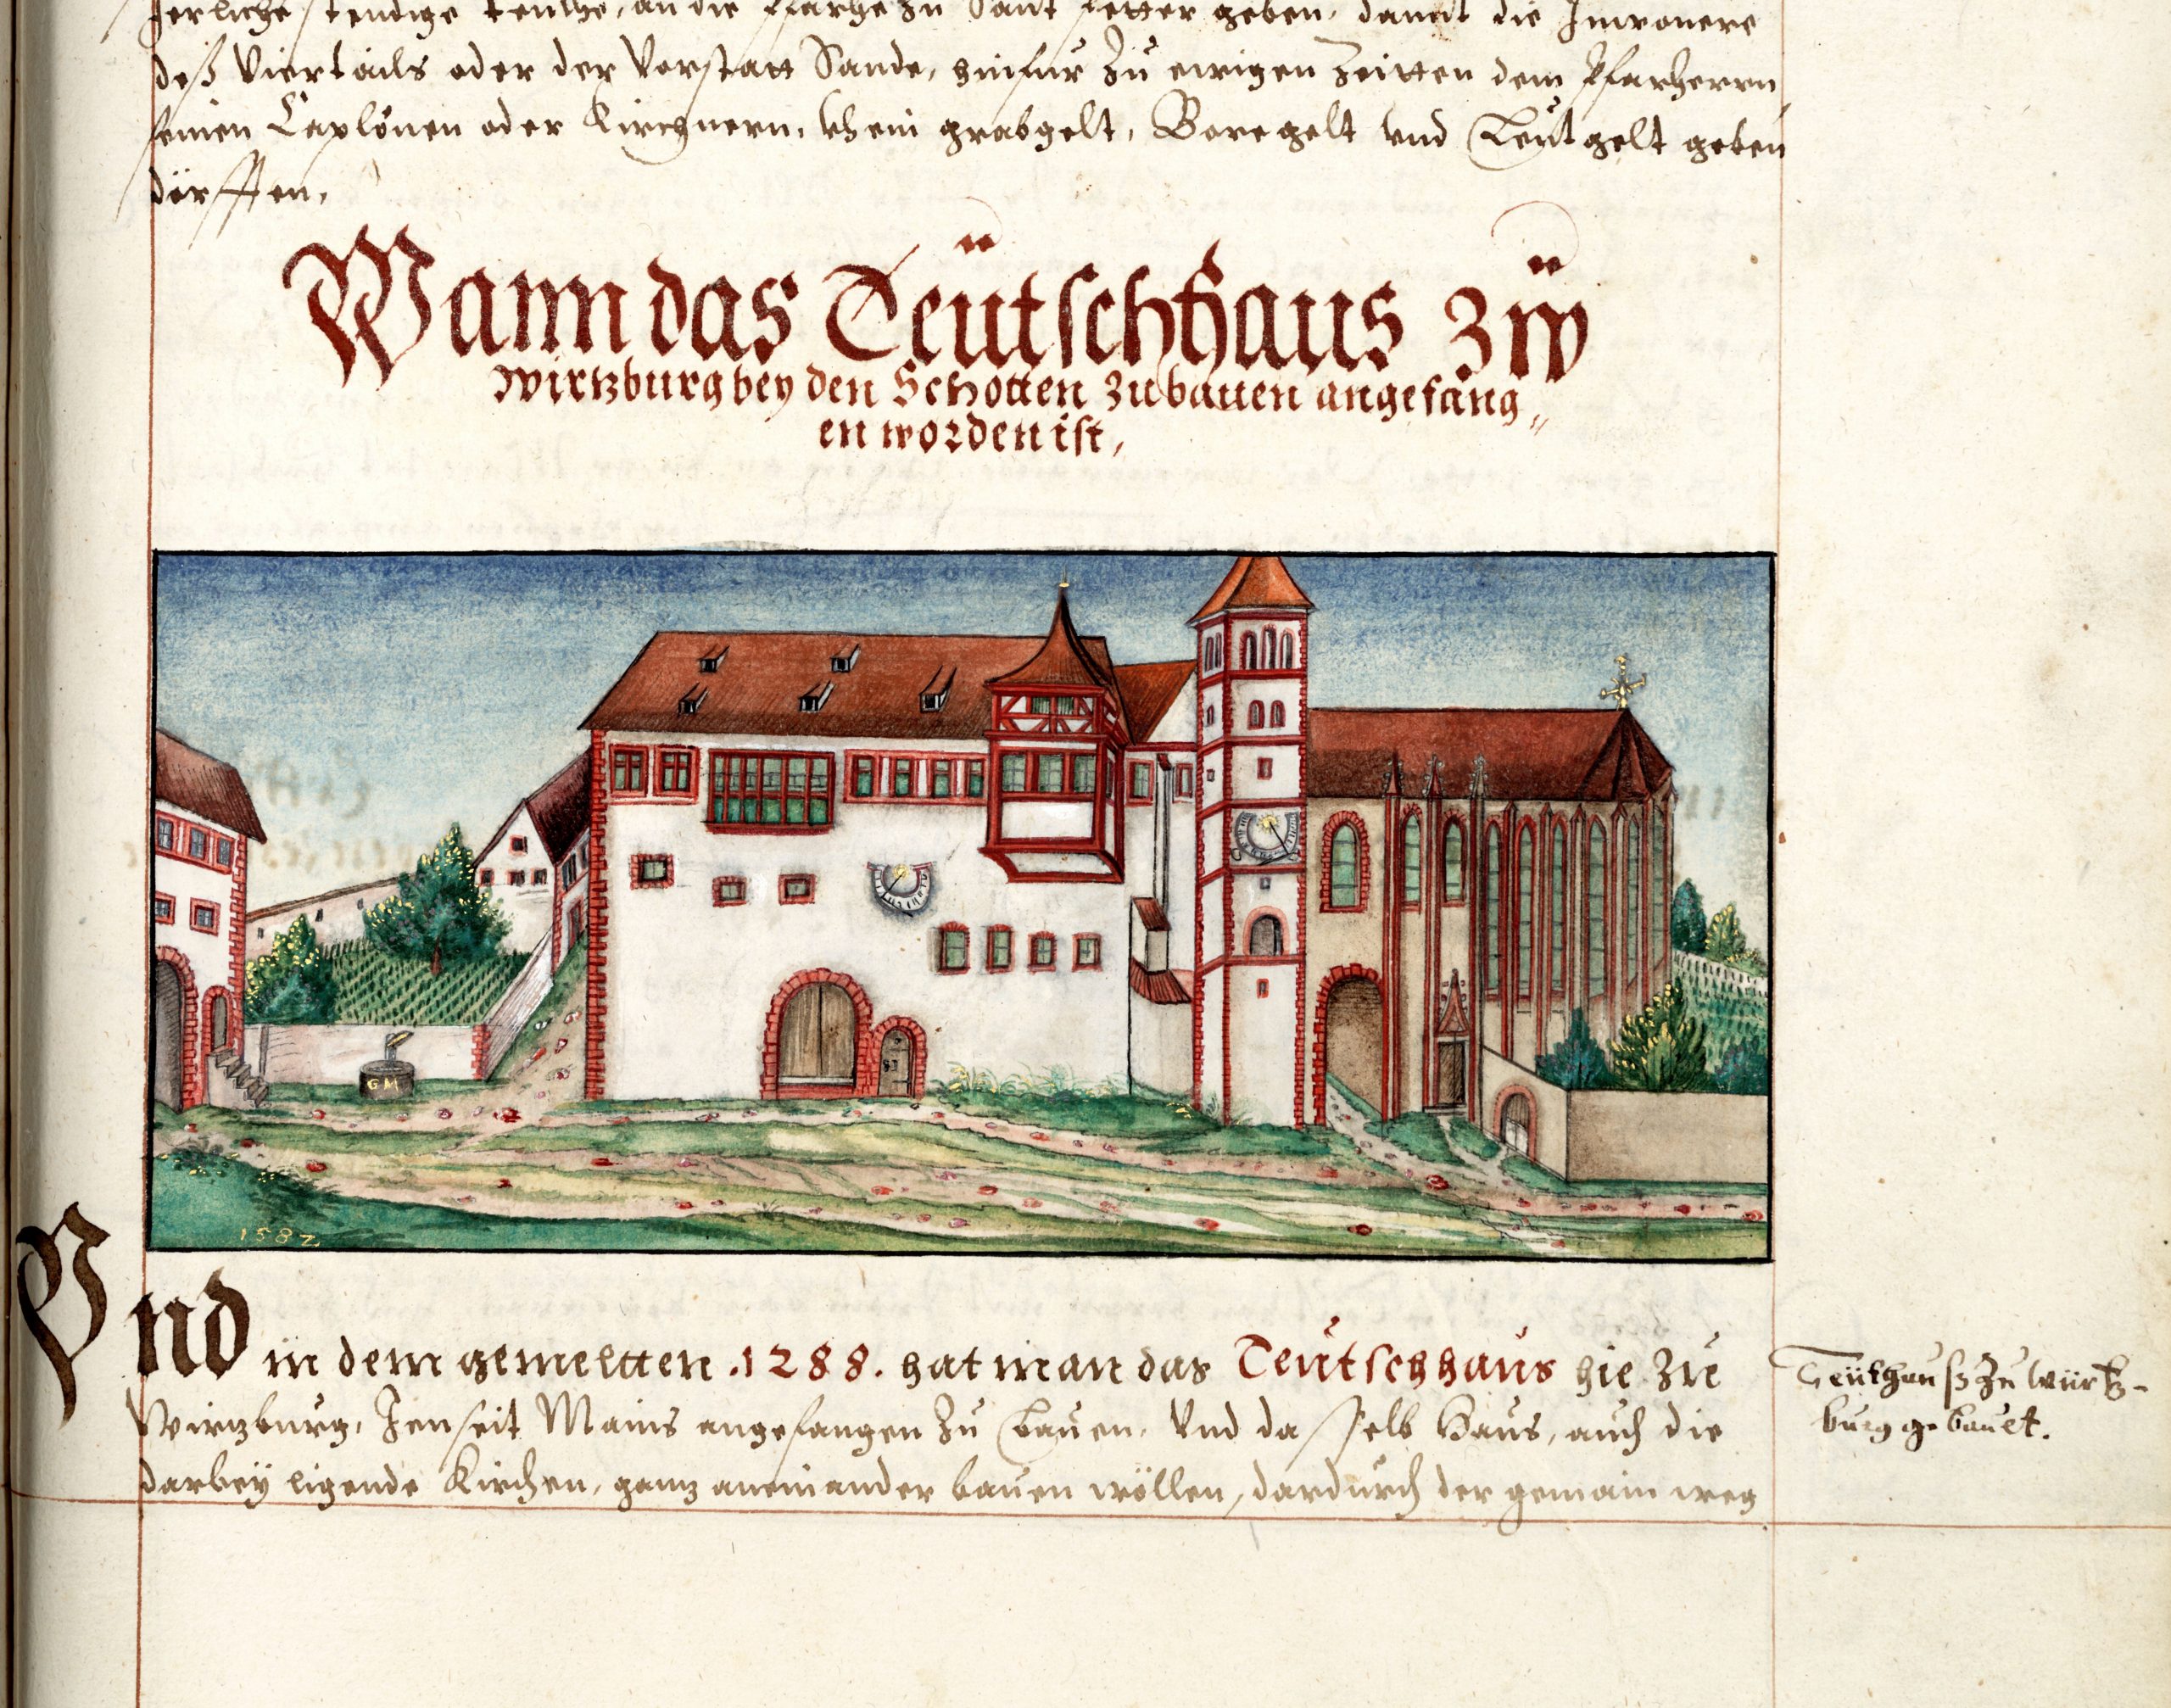 Jerliche stendige  an die Pfarhe zu Sant Petter geben, damit die Inwonere
deß Viertails oder der Vorstatt Sande, hinfur zu ewigen Zeitten dem Pfarherrn
seinen Caplönen oder Kirchnern, khein grabgelt, Boregelt vnd Leütgelt geben
dörfften,
Wann das Teütschhaus zẅ
Wirtzburg bey den Schotten zubauen angefang„
en worden ist,
GM
83
1582.
Vnd in dem gemeltten .1288. hat man das Teütschhaus hie zu
Wirzburg, Jenseit Mains angefangen zu bauen, Vnd dasselb Haus, auch die
darbeÿ ligende Kirchen, ganz aneinander bauen wöllen, dardurch der gemain weg
Teüthauß zu Würtz-
burg gebauet.